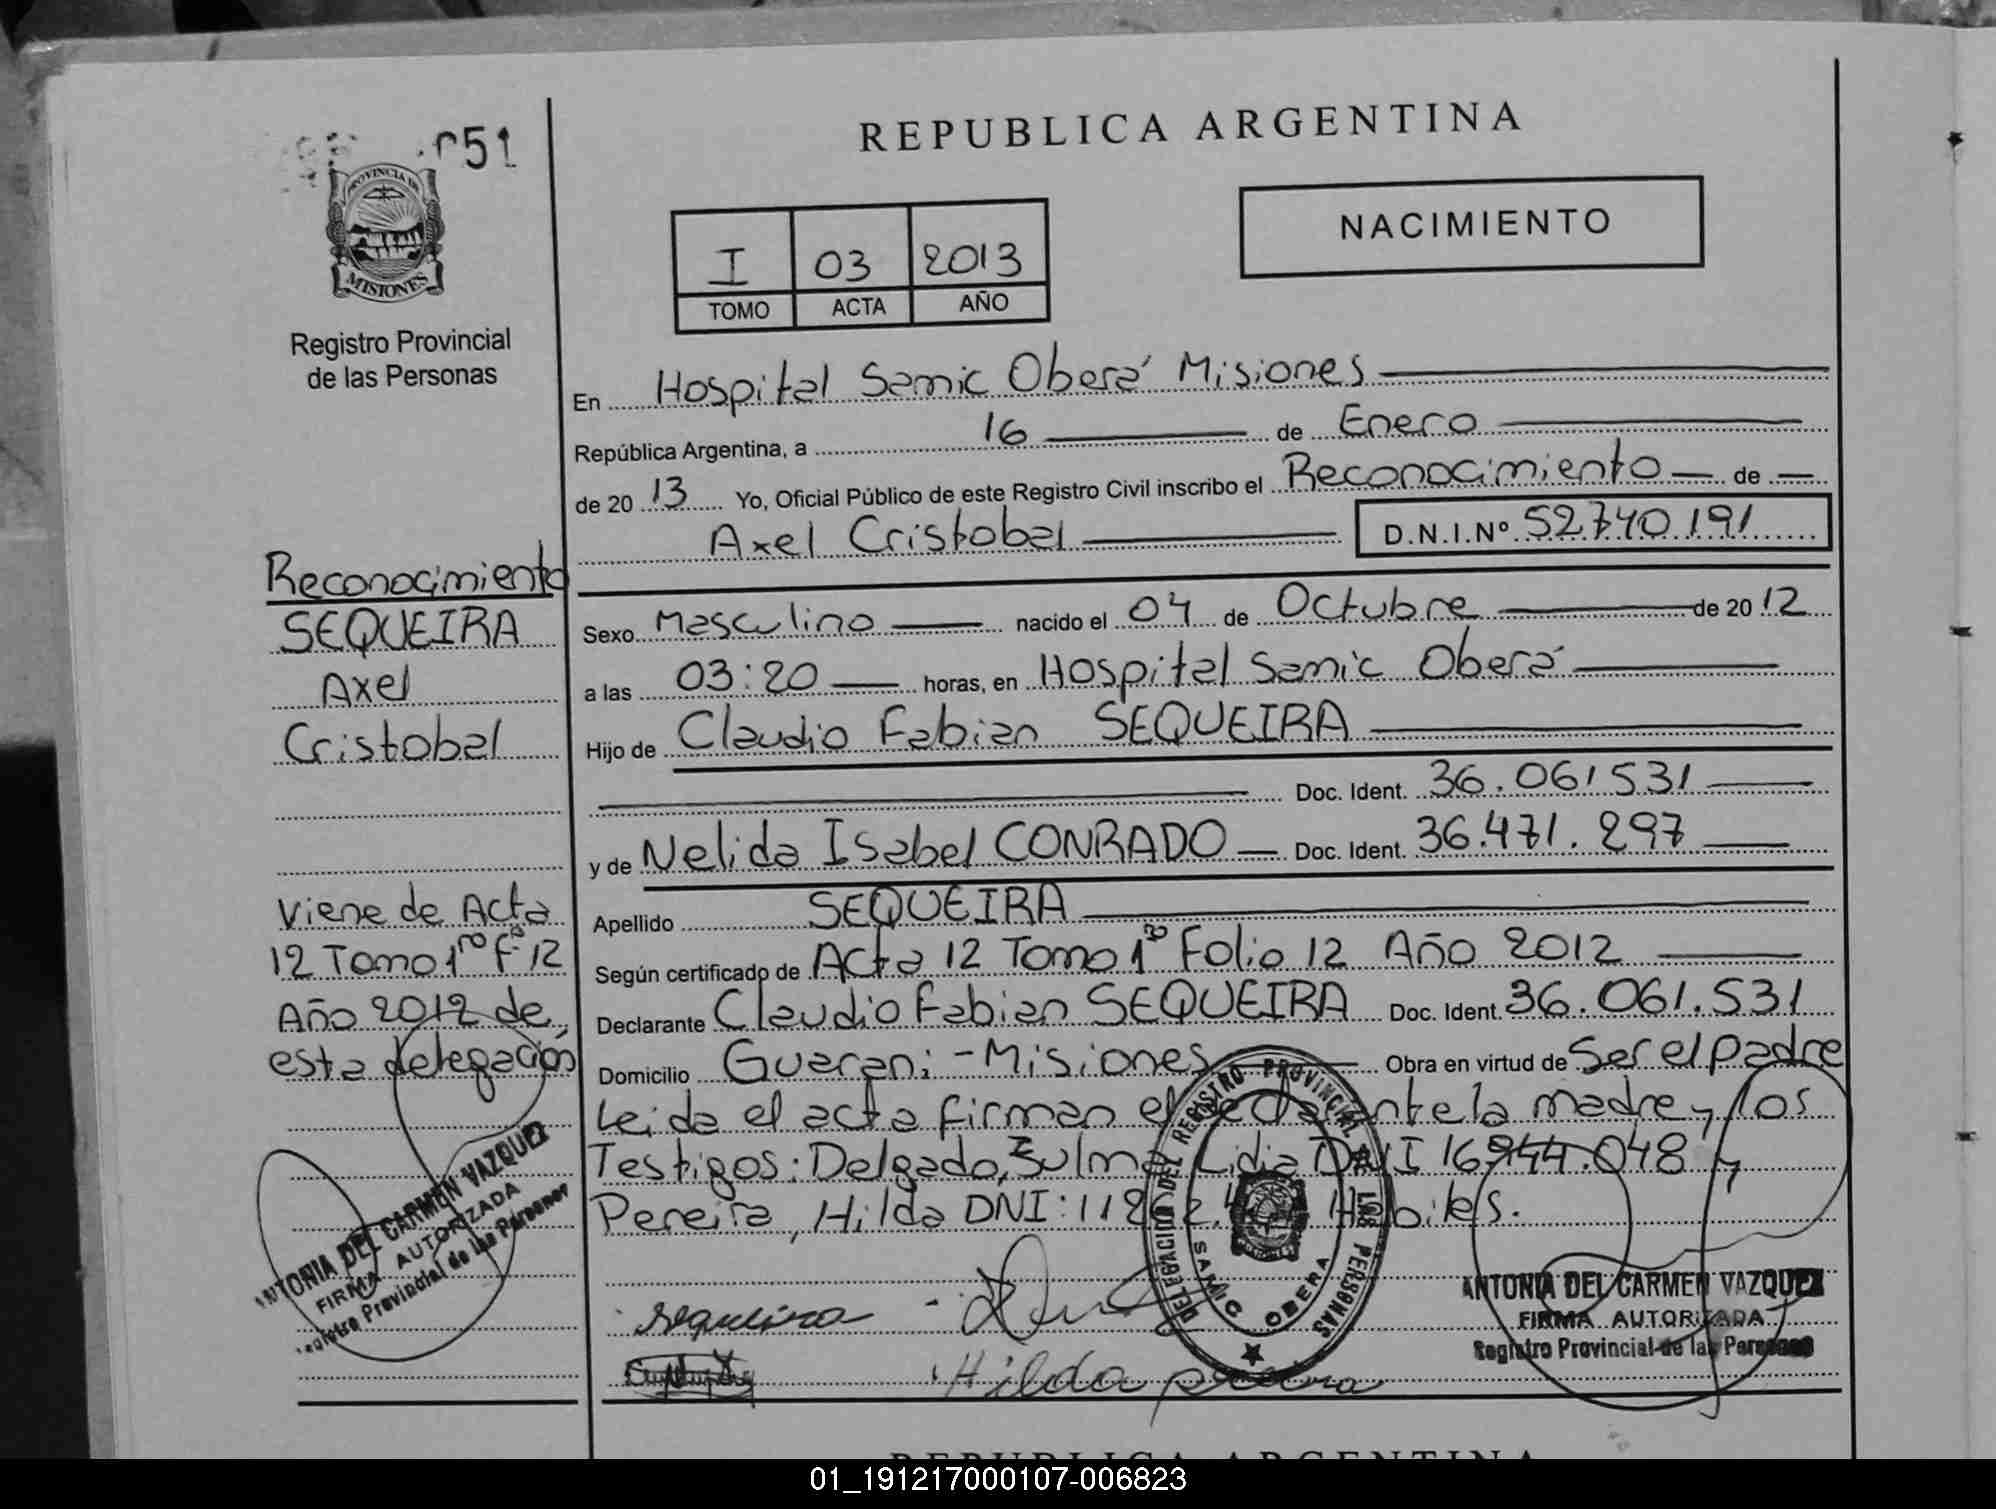 051
PROVINCIA DE
MISIONES
Registro Provincial
de las Personas
REPUBLICA ARGENTINA
I 03 2013
TOMO ACTA AÑO
NACIMIENTO
En Hospital Samic Oberá Misiones
República Argentina, a 16 de Enero
de 2013 Yo, Oficial Público de este Registro Civil inscribo el Reconocimiento de
Axel Cristobal D.N.I.Nº 52740.191
Sexo Masculino nacido el 04 de Octubre de 2012
a las 03:20 horas, en Hospital Samic Oberá
Hijo de Claudio Fabian SEQUEIRA
Doc. Ident. 36.061531
y de Nelida Isabel CONRADO Doc. Ident. 36.471.297
Apellido SEQUEIRA
Según certificado de Acta 12 Tomo 1ro Folio 12 Año 2012
Declarante Claudio Fabian SEQUEIRA Doc. Ident. 36.061.531
Domicilio Guarani - Misiones Obra en virtud de Ser el padre
Leida el acta firman el ante la madre y los
Testigos: Delgado, Sulma Lidia DNI 16944.048 y
Pereira, Hilda DNI: Habiles.
Reconocimiento
SEQUEIRA
Axel
Cristobal
Viene de Acta
12 Tomo 1ro Fº 12
Año 2012 de
esta delegación
ANTONIA DEL CARMEN VAZQUEZ
FIRMA AUTORIZADA
Registro Provincial de las Personas
Sequeira
Hilda pereira
DELEGACION DEL REGISTRO PROVINCIAL DE LAS PERSONAS
SAMIC OBERA
ANTONIA DEL CARMEN VAZQUEZ
FIRMA AUTORIZADA
Registro Provincial de las Personas
REPUBLICA ARGENTINA
01_191217000107-006823